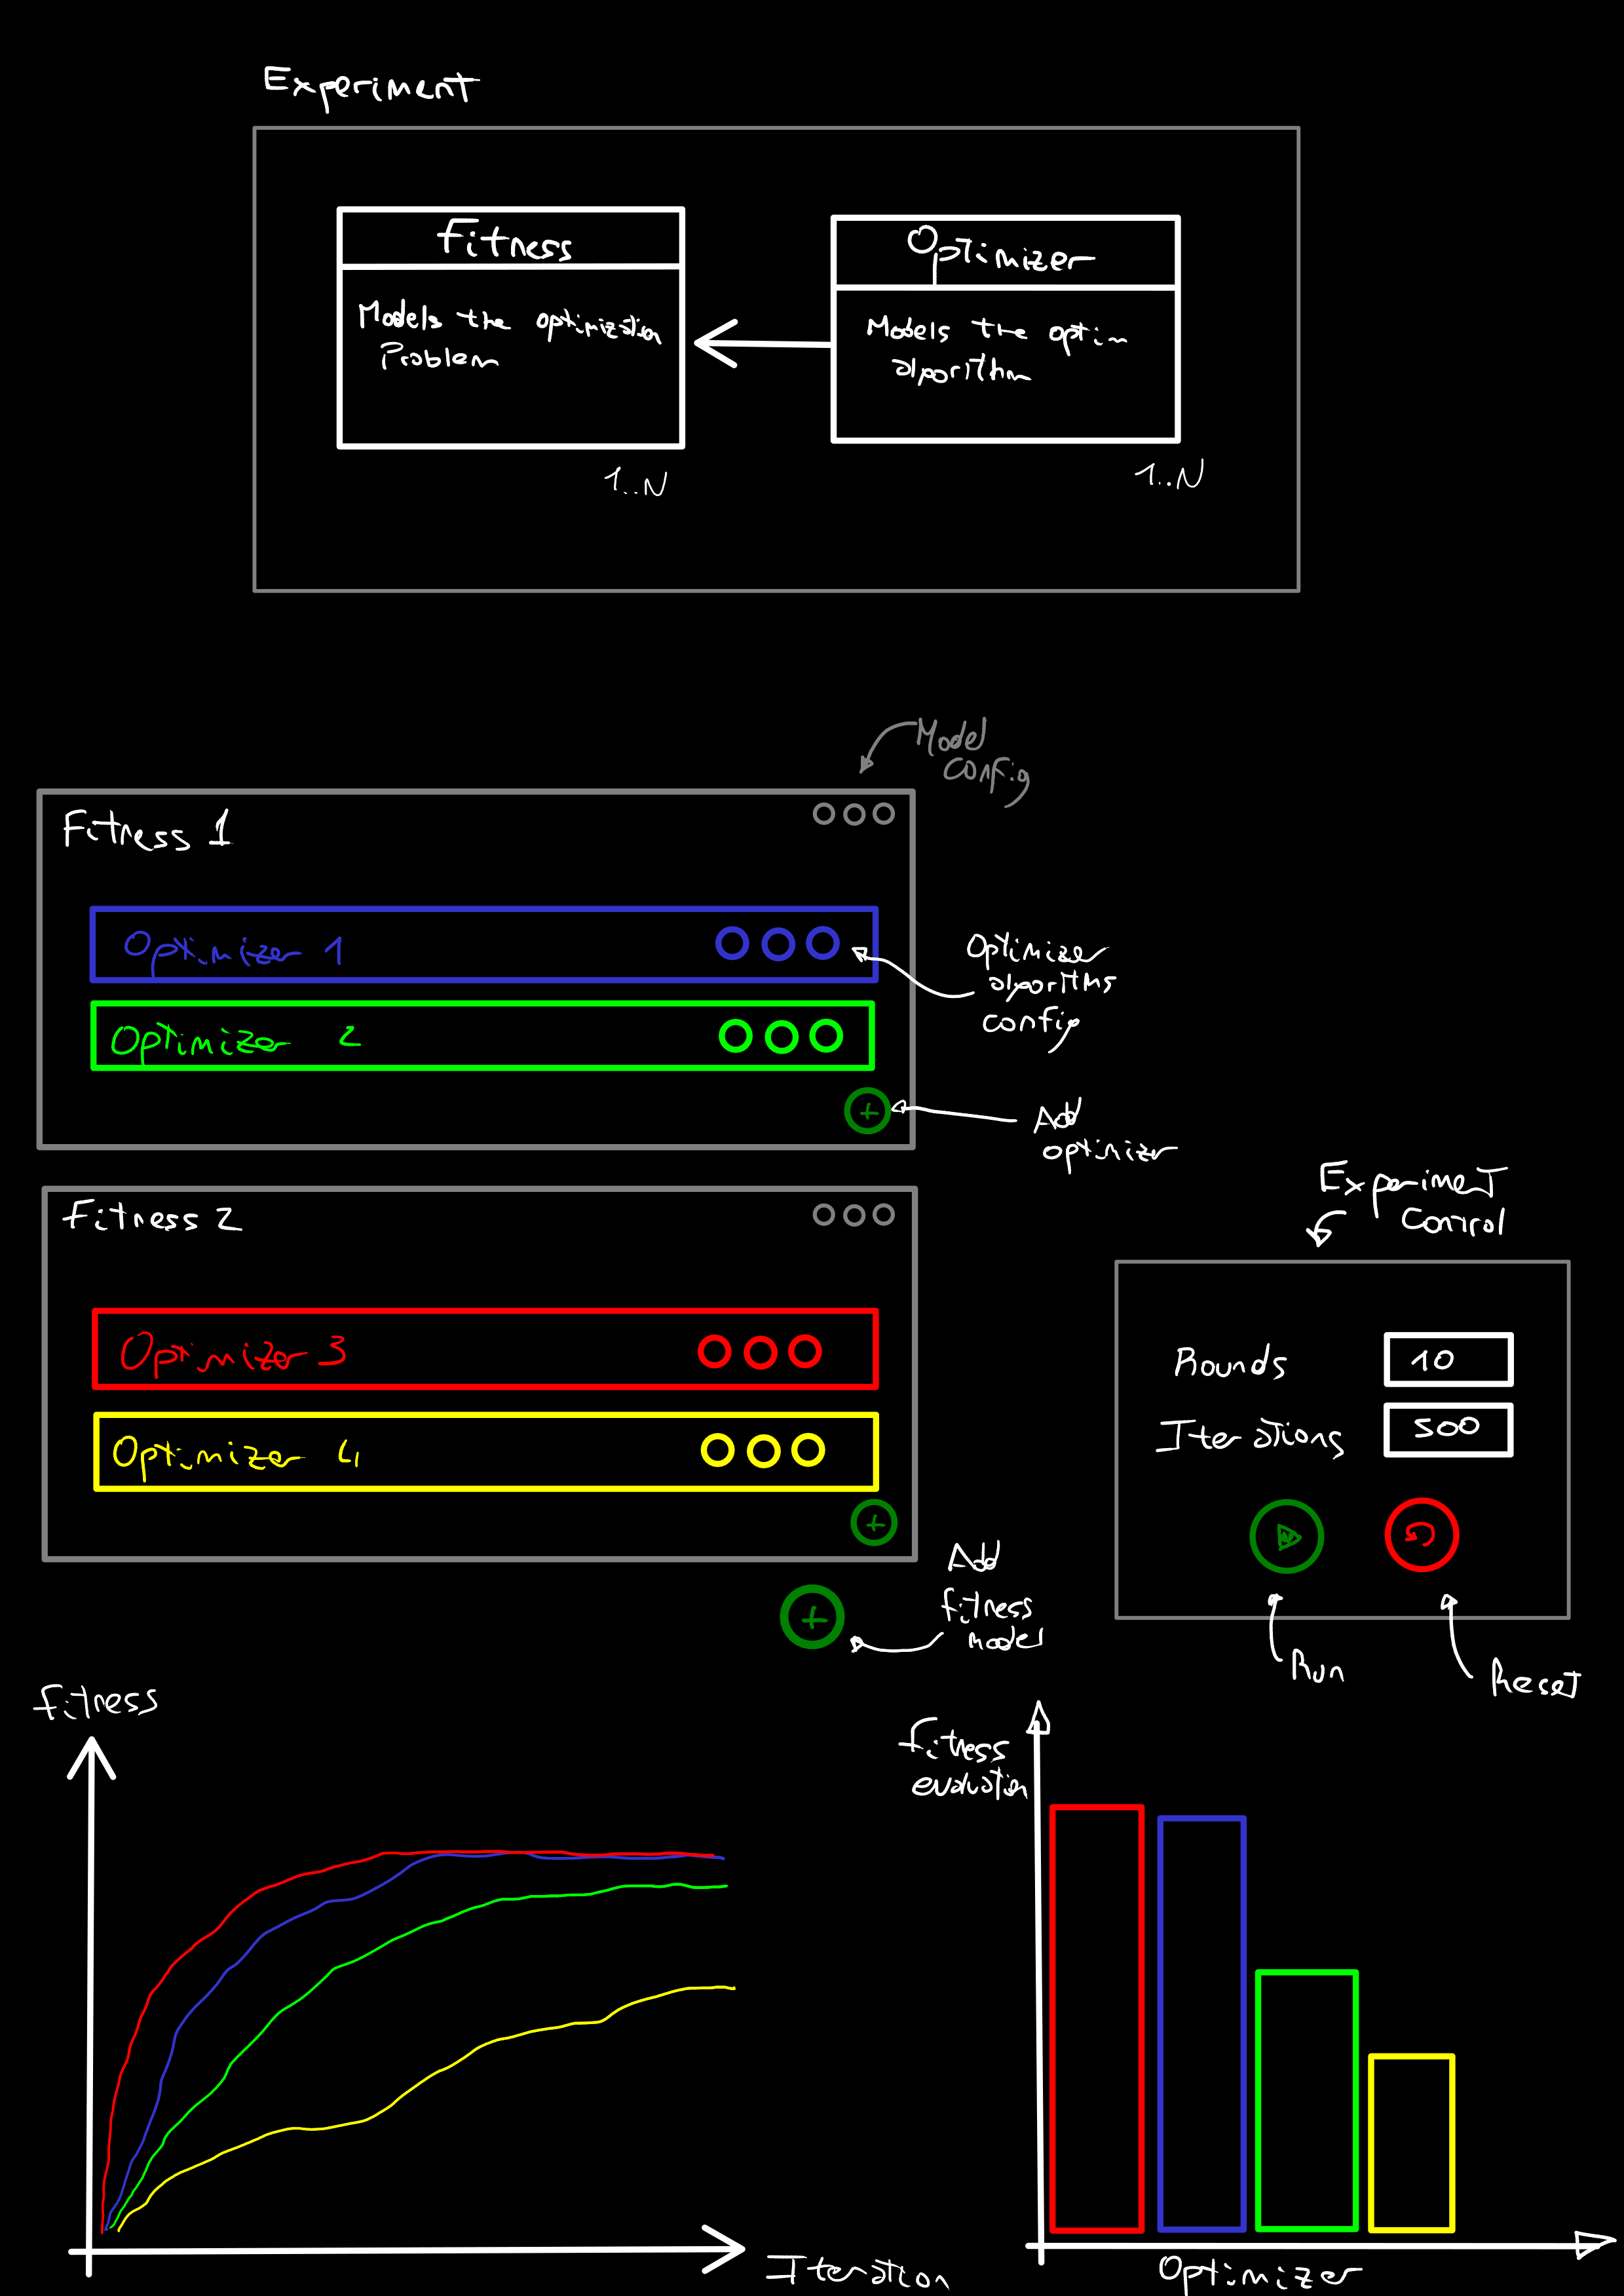 Experiment
Fitness
Models the optimization
Problem
1..N
Optimizer
Models the optim
algorithm
1..N
Model
config
Fitness 1
Optimizer 1
Optimizer 2
+
Optimizer
algorithms
config
Add
optimizer
Fitness 2
Optimizer 3
Optimizer 4
+
+
Add
fitness
model
Experiment
Control
Rounds 10
Iterations 500
Run
Reset
fitness
Iteration
fitness
evaluation
Optimizer